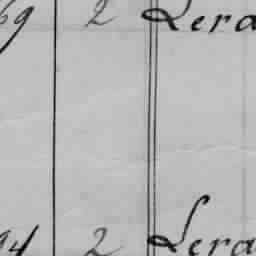 69 2 Lera
94 2 Lera